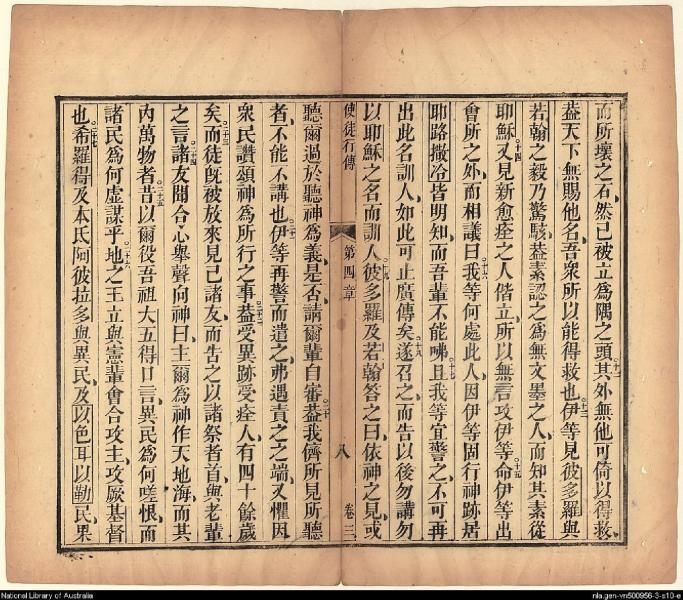 而所壞之石然已被立為隅之頭十二其外無他可倚以得救
葢天下無賜他名吾眾所以能得救也十三伊等見彼多羅與
若翰之毅乃驚駭葢素認之為無文墨之人而知其素從
耶穌十四又見新愈痊之人偕立所以無言攻伊等十五命伊等出
會所之外而相議曰十六我等何處此人因伊等固行神跡居
耶路撒冷皆明知而吾輩不能咈十七且我等宜警之不可再
出此名訓人如此可止廣傳矣十八遂召之而告以後勿講勿
以耶穌之名而訓人十九彼多羅及若翰答之曰依神之見或
使徒行傳 第四章 八 卷三
聽爾過於聽神為義是否請爾輩自審二十葢我儕所見所聽
者不能不講也二一伊等再警而遣之弗遇責之之端又懼因
衆民讚頌神為所行之事二二葢受異跡受痊人有四十餘歲
矣二三而徒旣被放來見己諸友而告之以諸祭者首與老輩
之言二四諸友聞合心舉聲向神曰主爾為神作天地海而其
內萬物者二五昔以爾役吾祖大五得口言異民為何嗟恨而
諸民為何虛謀乎二六地之王立與憲輩會合攻主攻厥基督
也二七希羅得及本氐阿彼拉多與異民及以色耳以勒民果
National Library of Australia
nla.gen-vn500956-3-s10-e